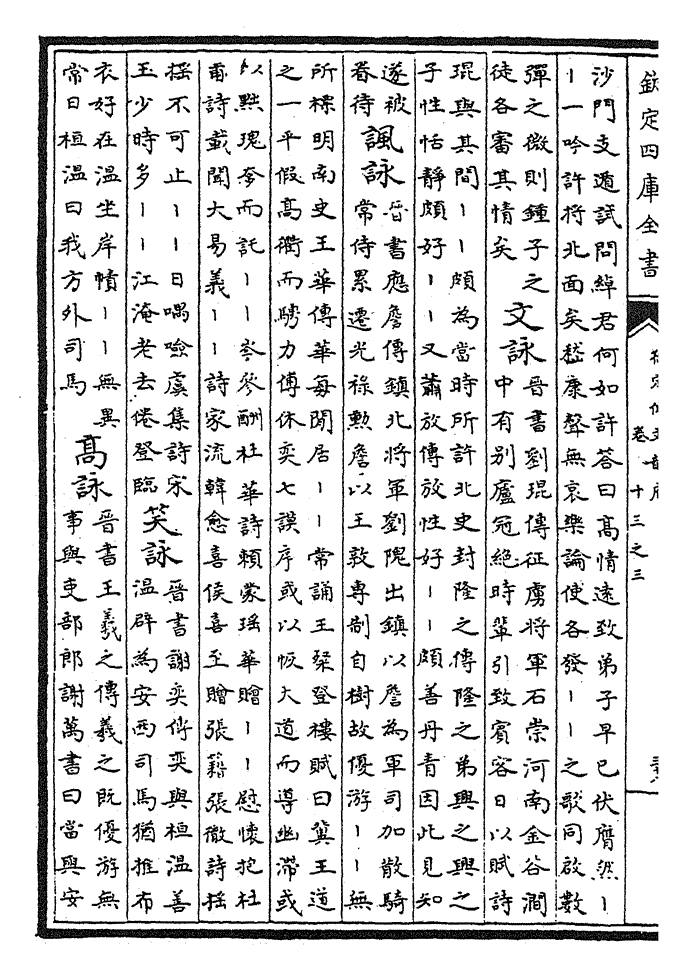 欽定四庫全書
卷
十三之三
沙門支遁試問綽君何如許答曰髙情逺致弟子早已伏膺然丨
丨一吟許將北面矣嵇康聲無哀樂論使各發丨丨之歌同啟數
彈之微則鍾子之
徒各審其情矣
文詠
晉書劉琨傳征虜將軍石崇河南金谷澗
中有别廬冠絶時輩引致賓客日以賦詩
琨與其間丨丨頗為當時所許北史封隆之傳隆之弟興之興之
子性恬靜頗好丨丨又蕭放傳放性好丨丨頗善丹青因此見知
遂被
眷待
諷詠
晉書應詹傳鎮北將軍劉隗出鎮以詹為軍司加散騎
常侍累遷光禄勲詹以王敦專制自樹故優游丨丨無
所標明南史王華傳華每閒居丨丨常誦王粲登樓賦曰冀王道
之一平假髙衢而騁力傅休奕七謨序或以恢大道而導幽滯或
以黜瑰奓而託丨丨岑參酬杜華詩頼蒙瑶華贈丨丨慰懷抱杜
甫詩載聞大易義丨丨詩家流韓愈喜侯喜至贈張籍張徹詩揺
揺不可止丨丨日喁噞虞集詩宋
玉少時多丨丨江淹老去倦登臨
笑詠
晉書謝奕傳奕與桓温善
温辟為安西司馬猶推布
衣好在温坐岸幘丨丨無異
常日桓温曰我方外司馬
髙詠
晉書王羲之傳羲之既優游無
事與吏部郎謝萬書曰當與安